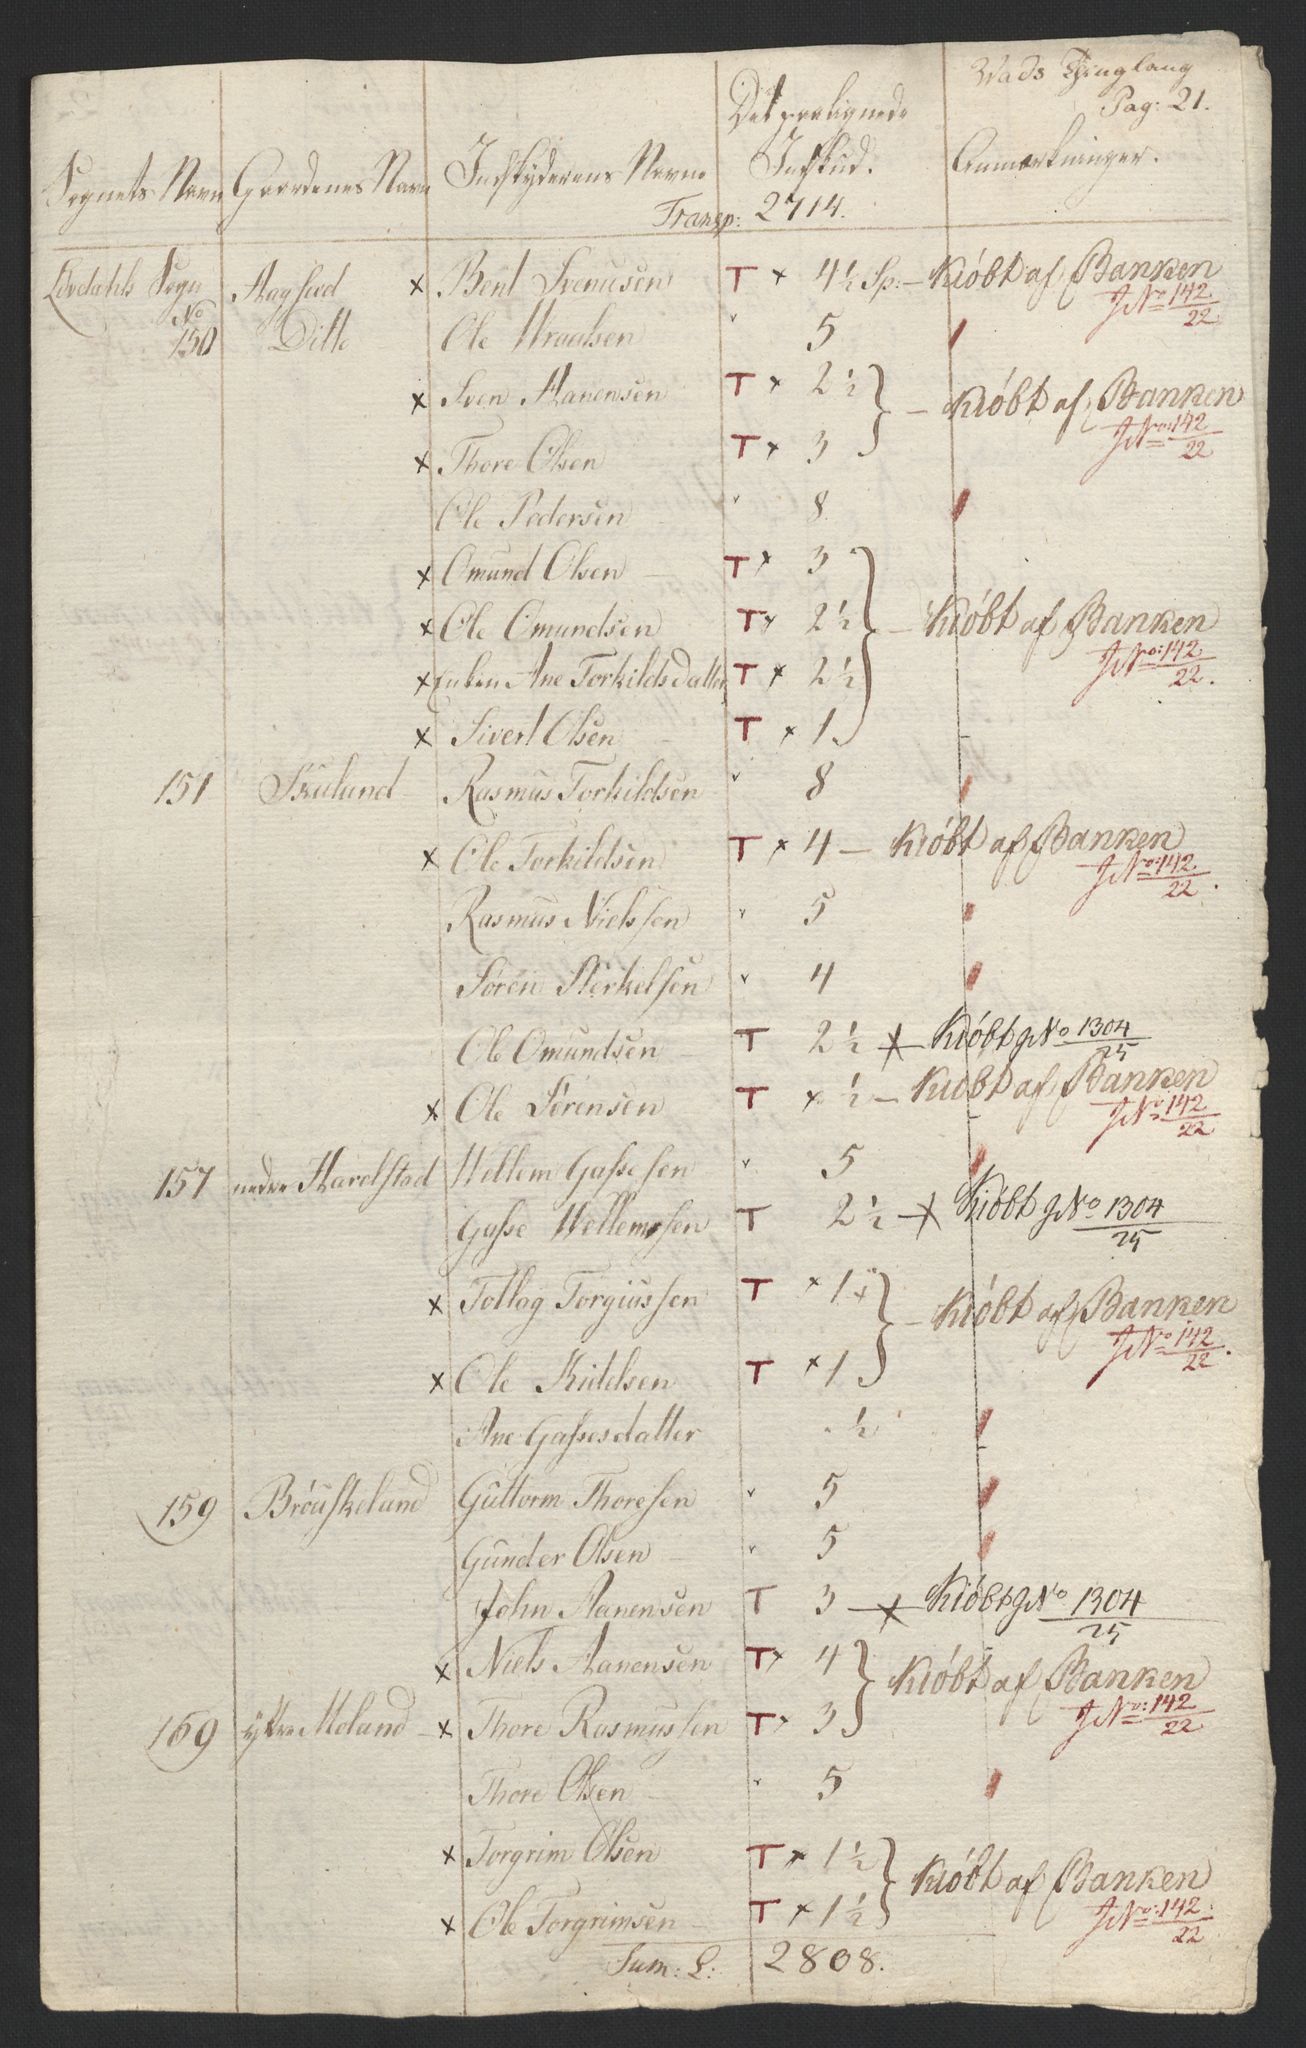 Wads Thinglaug
Pag: 21.
Sognets Navn Gaardenes Navn Indskyderens Navne Det paalignede Indskud. Anmærkninger.
Transp: 2714.
Lövdahls Sogn Aagsted x Bent Svenusen T x 4½ Sp: – Kiöbt af Banken
JNo: 142/22
No 150 Ditto Ole Wraalsen " 5
x Sven Aanensen T x 2½ } – Kiöbt af Banken
JNo: 142/22
x Thore Olsen T x 3
Ole Pedersen " 8
x Omund Olsen T x 3
x Ole Omundsen T x 2½ } – Kiöbt af Banken
JNo: 142/22.
x Enken Ane Torkilds datter T x 2½
x Sivert Olsen T x 1
151 Skuland Rasmus Torkildsen " 8
x Ole Torkildsen T x 4 – Kiöbt af Banken
JNo: 142/22.
Rasmus Nielssen " 5
Sören Sterkelsen " 4
Ole Omundsen T 2½ x Kiöbt JNo 1304/25
x Ole Sörensen T x ½ – Kiöbt af Banken
JNo: 142/22
157 nedre Harelstad Wellem Gassesen " 5
Gasse Wellemsen T 2½ x Kiöbt JNo 1304/25
x Tollag Torgiussen T x 1 } – Kiöbt af Banken
JNo: 142/22.
x Ole Kiddsen T x 1
Ane Gassesdatter ½
159 Bröuskeland Guttorm Thoresen " 5
Gunder Olsen " 5
John Aanensen T 3 x Kiöbt JNo 1304/25
x Niels Aanensen T x 4 } Kiöbt af Banken
JNo: 142/22
169 yttre Moland x Thore Rasmussen T x 3
Thore Olsen " 5
x Torgrim Olsen T x 1½ } Kiöbt af Banken
JNo: 142/22
x Ole Torgrimsen T x 1½
Sum: L: 2808.